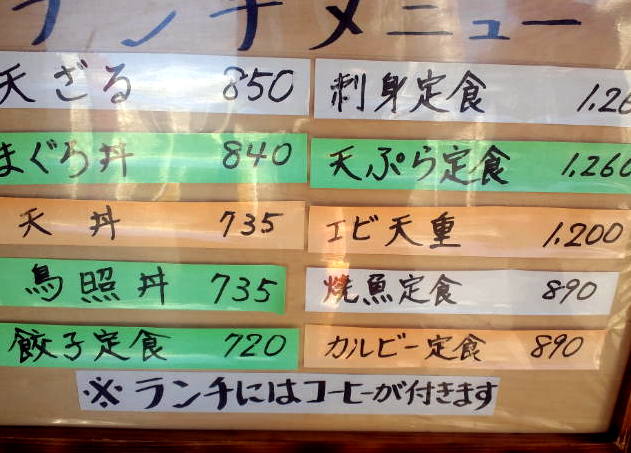 ランチメニュー
天ざる 850
まぐろ丼 840
天丼 735
鳥照丼 735
餃子定食 720
刺身定食 1,26
天ぷら定食 1,260
エビ天重 1,200
焼魚定食 890
カルビー定食 890
※ランチにはコーヒーが付きます